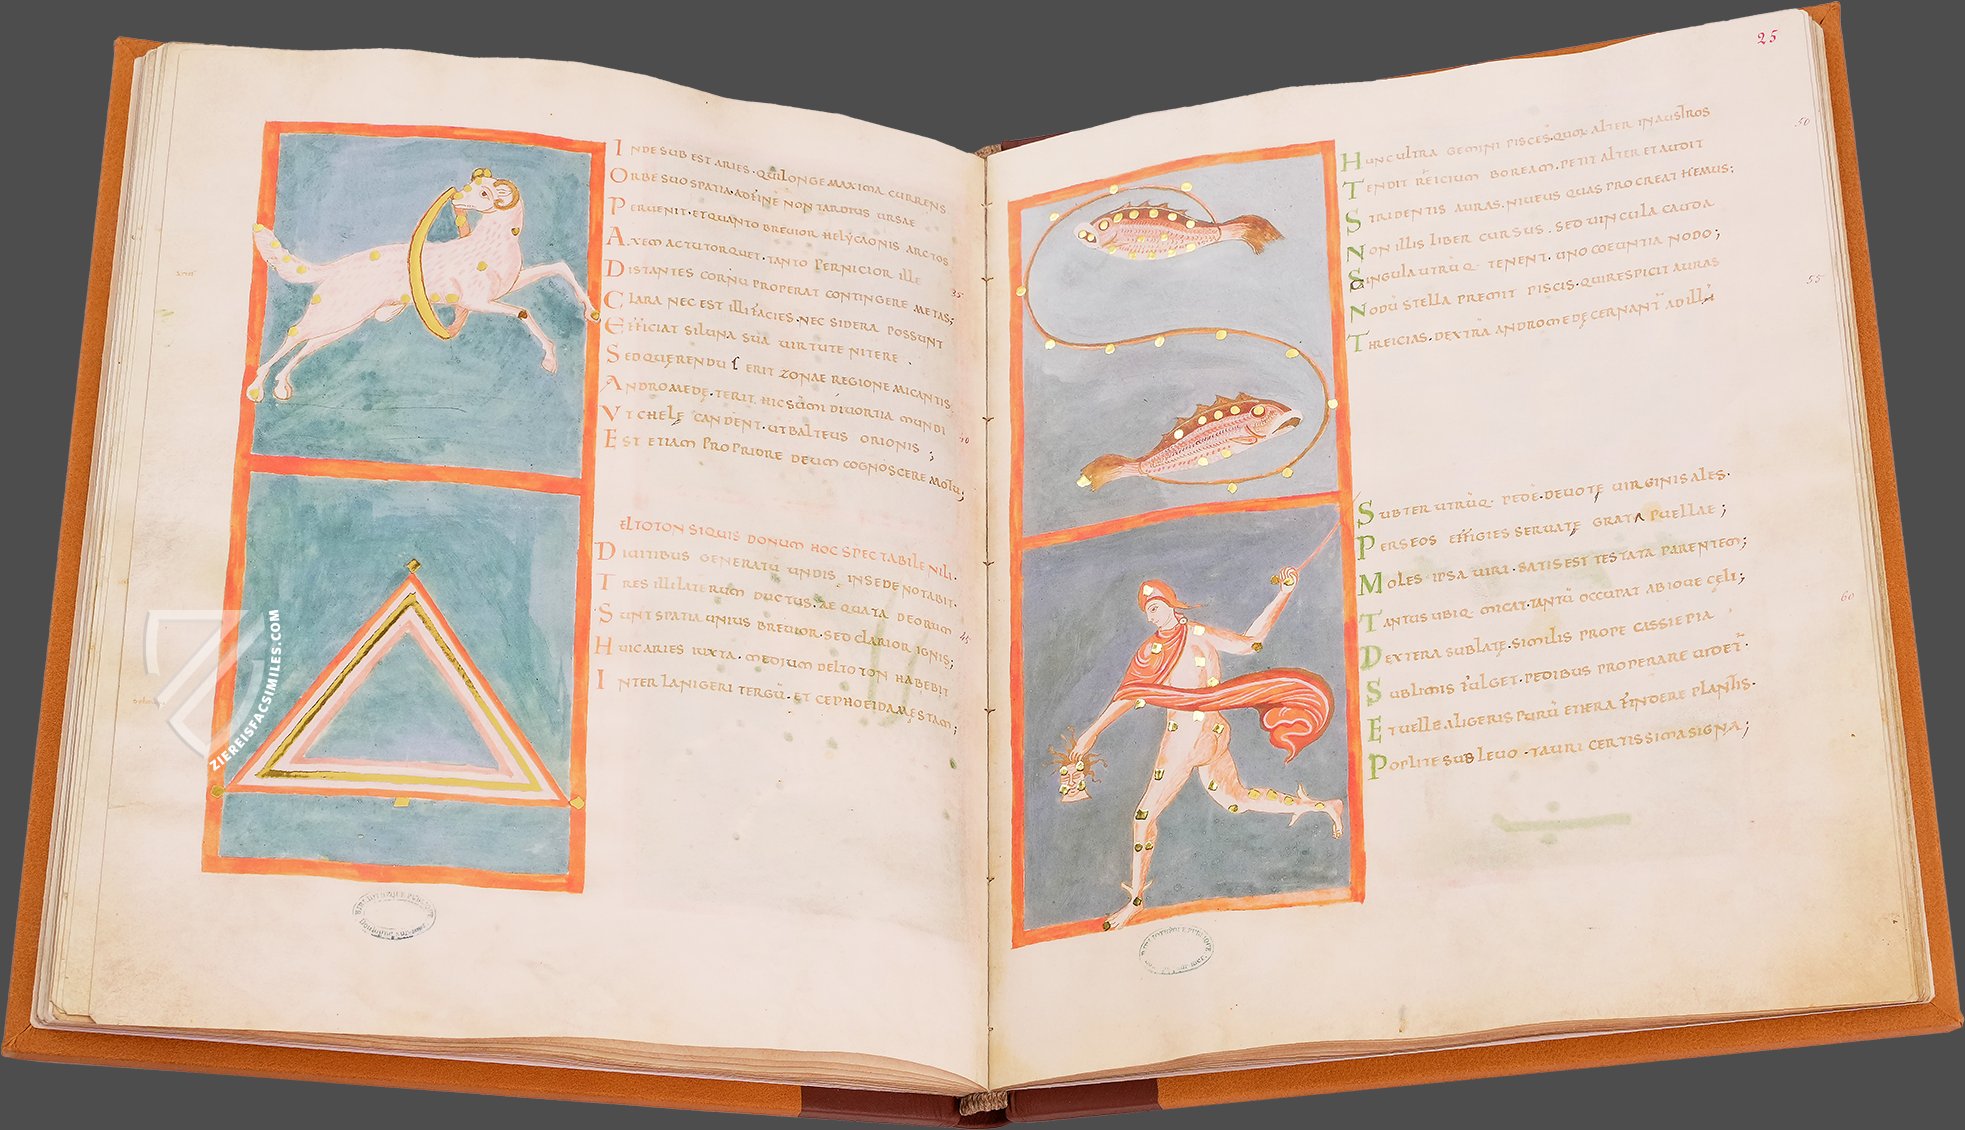 INDE SUB EST ARIES. QUI LONGE MAXIMA CURRENS
ORBE SUO SPATIA. ADFINE NON TARDIUS URSAE
PERUENIT. ET QUANTO BREUIOR HELYCAONIS ARCTOS
AXEM ACTU TORQUET. TANTO PERNICIOR ILLE
DISTANTES CORNU PROPERAT CONTINGERE METAS;
35
CLARA NEC EST ILLI FACIES. NEC SIDERA POSSUNT
EFFICIAT SI LUNA SUA UIRTUTE NITERE.
SED QUĘRENDUS ERIT ZONAE REGIONE MICANTIS
ANDROMEDĘ. TERIT HIC SUMI DIUORTIA MUNDI
40
VT CHELĘ CANDENT. UT BALTEUS ORIONIS;
EST ETIAM PROPRIORE DEUM COGNOSCERE MOTU;
ELTOTON SIQUIS DONUM HOC SPECTABILE NILI.
DIUITIBUS GENERATŪ UNDIS IN SEDE NOTABIT.
TRES ILLI LATERUM DUCTUS. AEQUATA DEORUM
45
SUNT SPATIA UNIUS BREUIOR. SED CLARIOR IGNIS;
HUIC ARIES IUXTA. MEDIUM DELTOTON HABEBIT
INTER LANIGERI TERGŪ. ET CEPHEIDA MĘSTAM;
ZIEREISFACSIMILES.COM
25
HUNC ULTRA GEMINI PISCES. QUOR ALTER IN AUSTROS
50
TENDIT REICIUM BOREAM. PETIT ALTER ET AUDIT
STRIDENTIS AURAS. NIUEUS QUAS PROCREAT HEMUS;
NON ILLIS LIBER CURSUS. SED UINCULA CAUDA
SINGULA UTRŪQ. TENENT. UNO COEUNTIA NODO;
NODŪ STELLA PREMIT PISCIS. QUI RESPICIT AURAS
55
THREICIAS. DEXTRĀ ANDROMEDĘ CERNANT AD ILLŪ
SUBTER UTRŪQ. PEDĒ. DEUOTĘ UIRGINIS ALES.
PERSEOS EFFIGIES SERUATĘ GRATA PUELLAE;
MOLES IPSA UIRI. SATIS EST TESTATA PARENTEM;
TANTUS UBIQ. MICAT. TANTŪ OCCUPAT AB IOUE CĘLI;
60
DEXTERA SUBLATĘ. SIMILIS PROPE CASSIEPIA
SUBLIMIS FULGET. PEDIBUS PROPERARE UIDET.
ET UELLE ALIGERIS PURŪ ETHERA FINDERE PLANTIS.
POPLITE SUB LEUO. TAURI CERTISSIMA SIGNA;